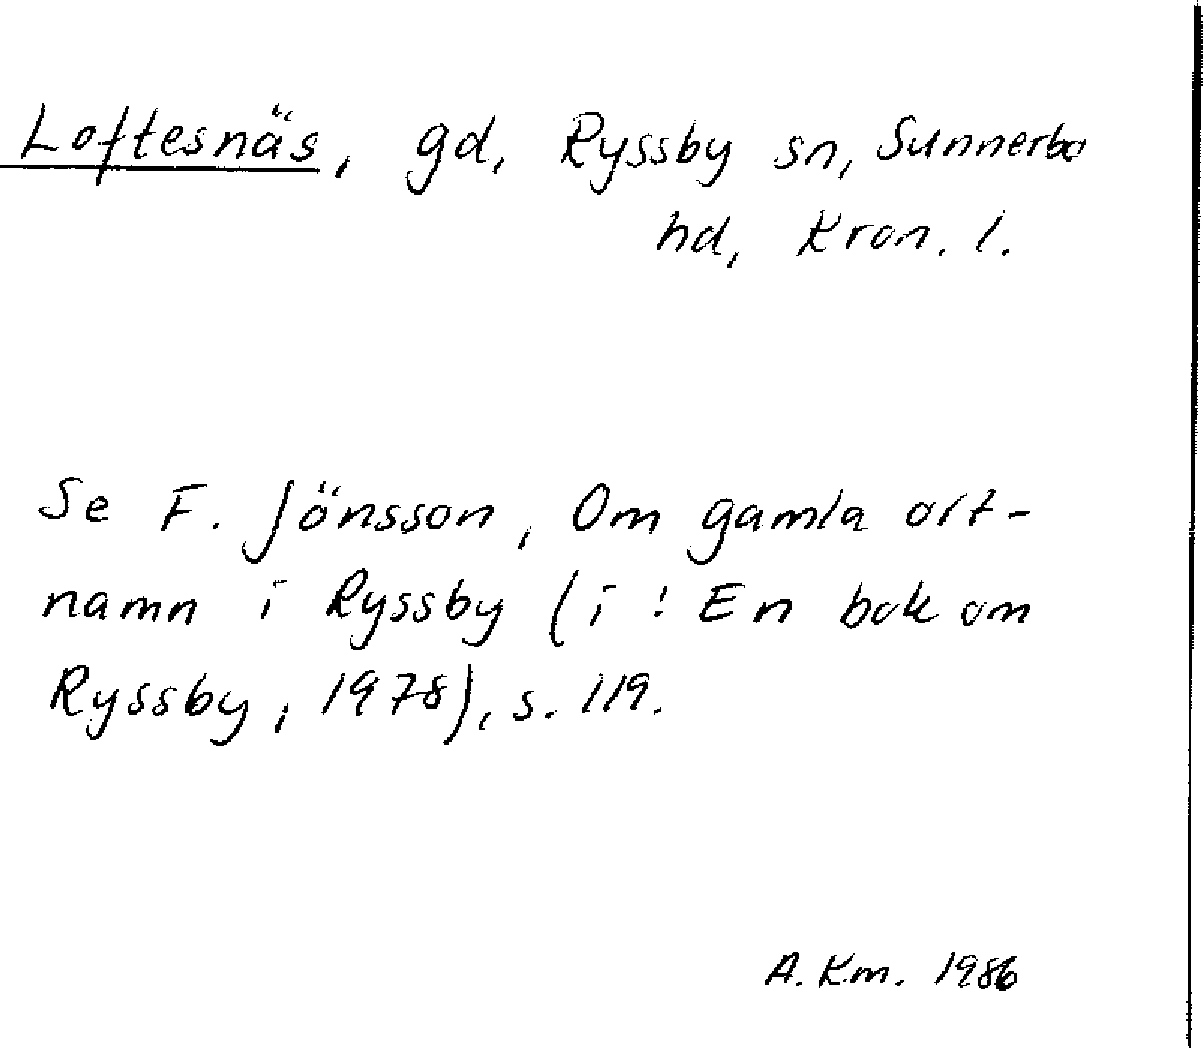 Loftesnäs, gd, Ryssby sn, Sunnerbo
hd, Kron. l.
Se F. Jönsson, Om gamla ort-
namn i Ryssby (i: En bok om
Ryssby, 1978), s. 119.
A. Km. 1986